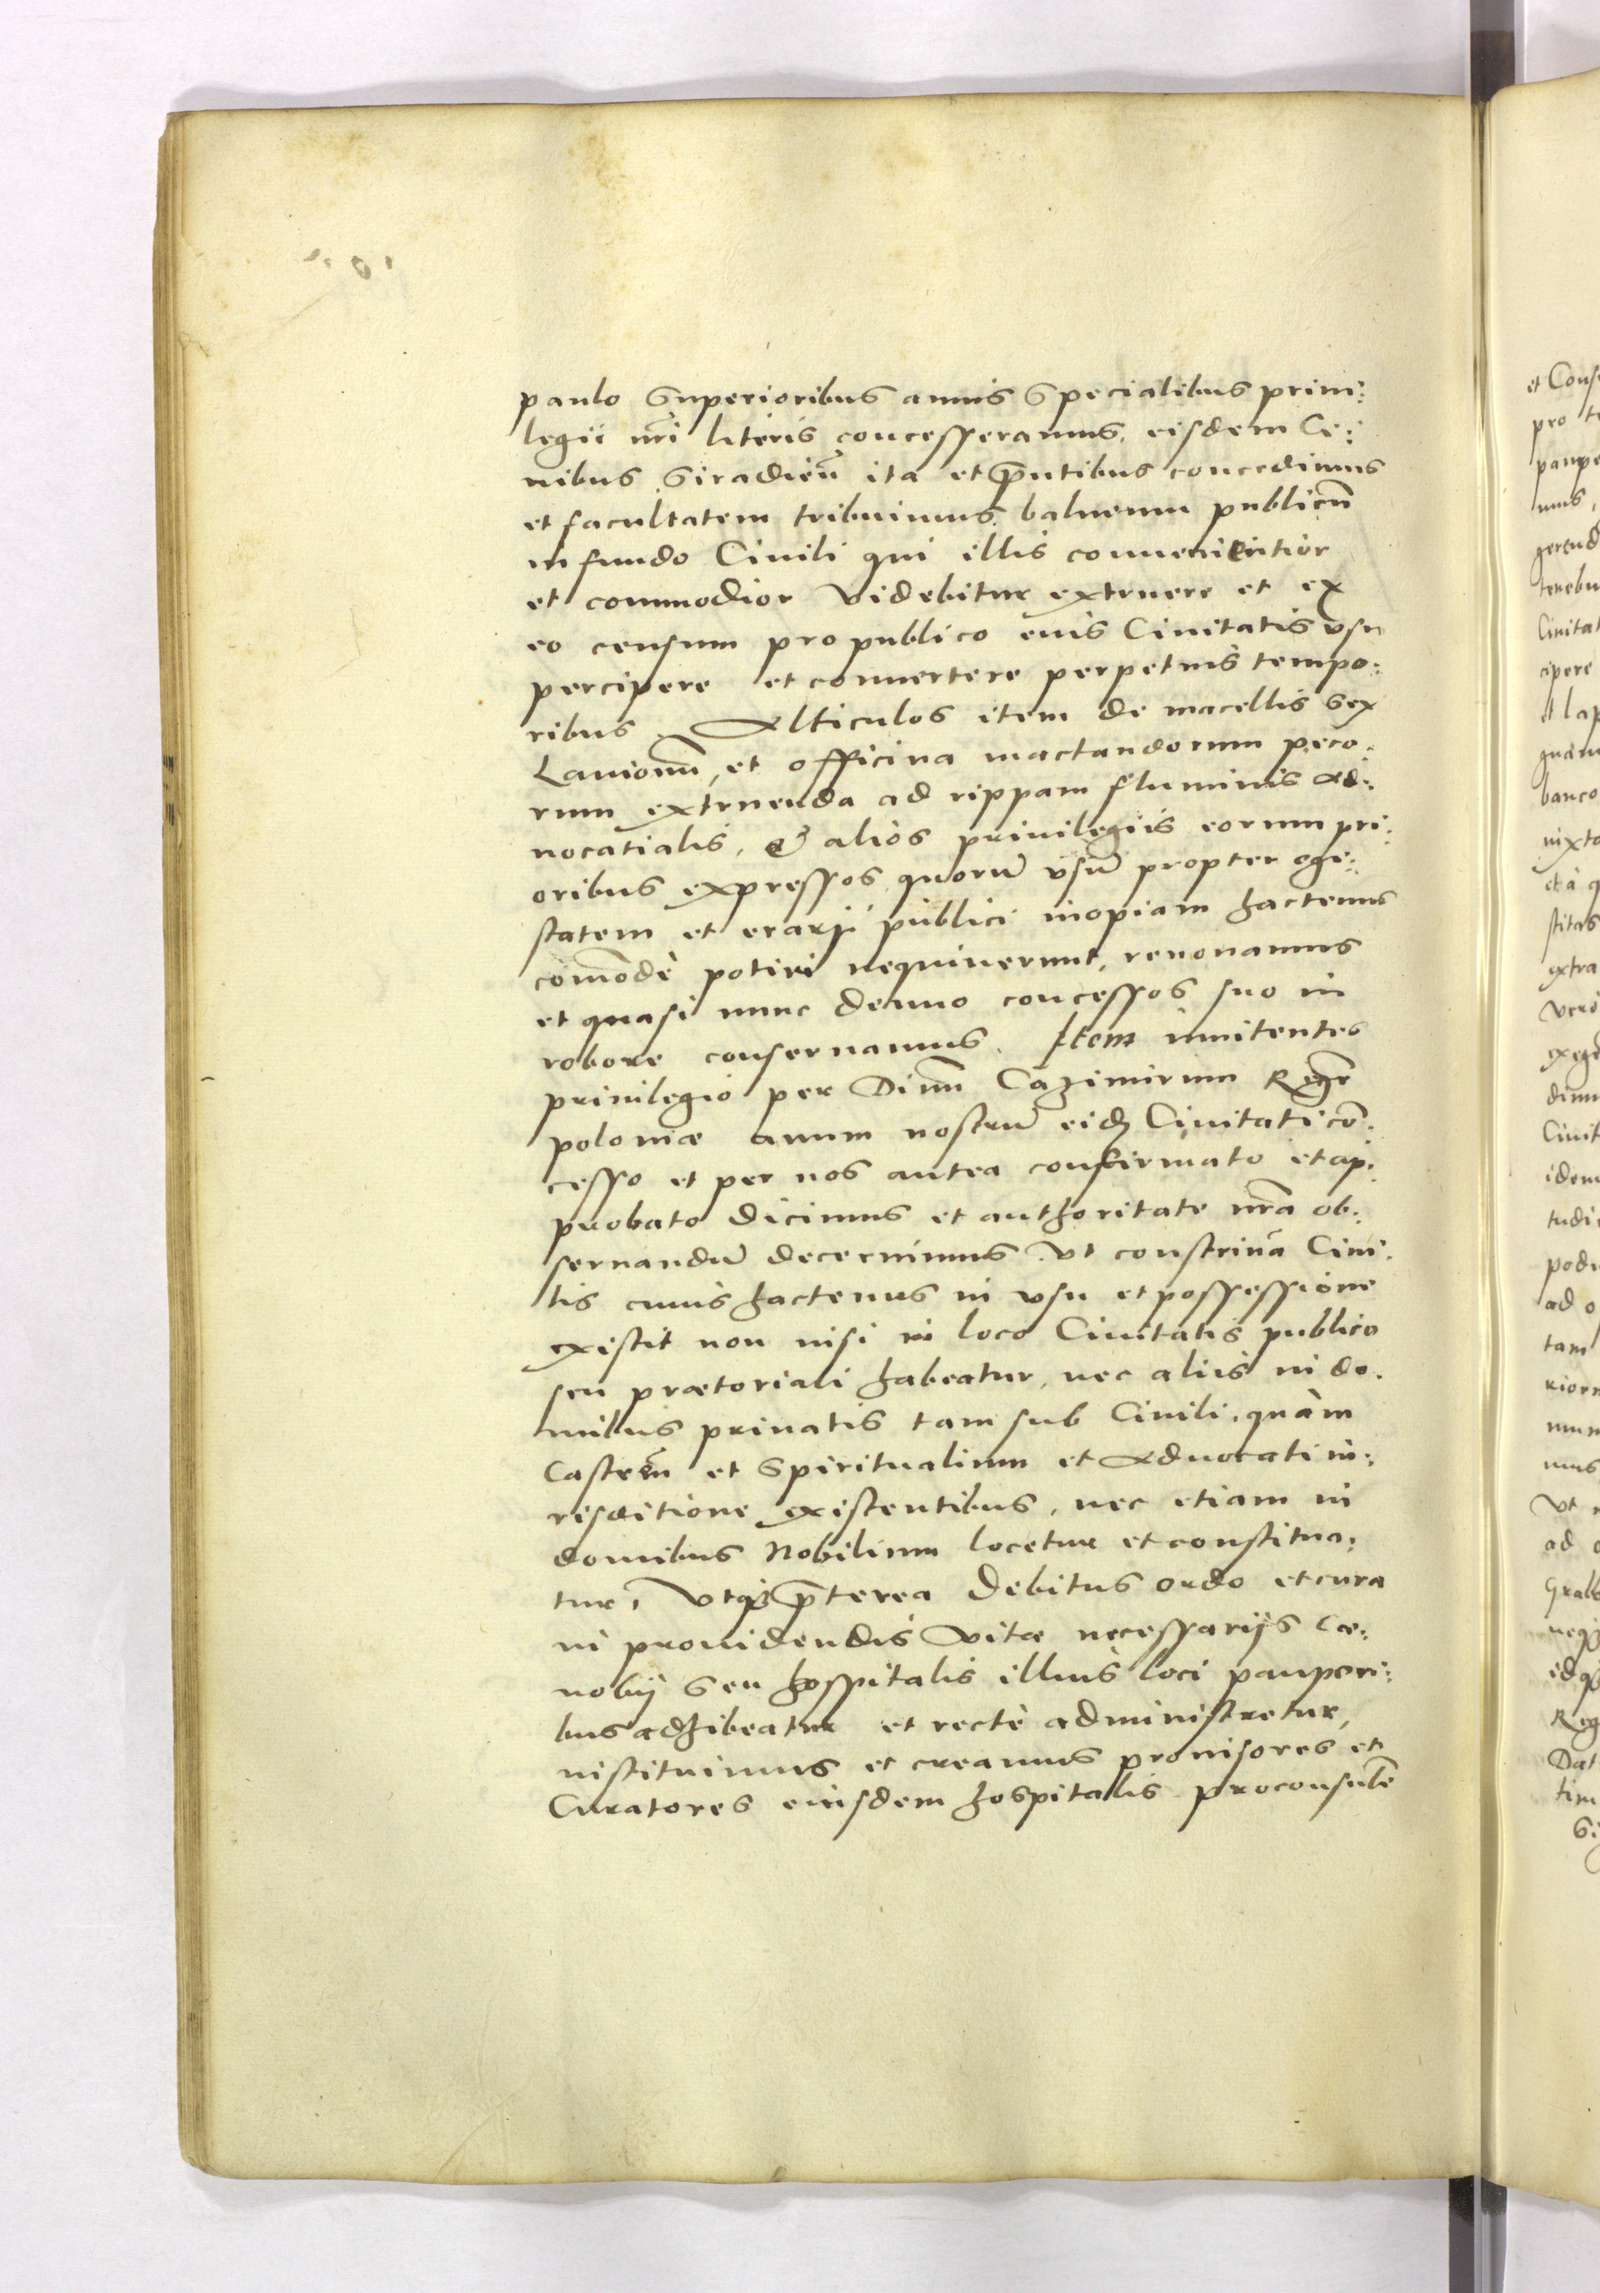 paulo Superioribus annis Specialibus priui:
legii nr̃i literis concesseramus, eisdem Ci:
uibus Siradieñ ita et p̃ntibus concedimus
et facultatem tribuimus balneum publicũ
in fundo Ciuili qui illis conuenientior
et commodior videbitur extruere et ex
eo censum pro publico euis Ciuitatis vsu
percipere et conuertere perpetuis tempo:
ribus. Alticulos item de macellis sex
Lanionũ, et officina mactandorum peco:
rum extruenda ad rippam fluminis Ad:
uocatialis, & alios priuilegiis eorum pri:
oribus expressos, quorũ vsũ propter ege:
statem et erarij publici inopiam hactenus
com̃odè potiri nequiuerunt, renouamus
et quasi nunc denuo concessos suo in
robore conseruamus. Item innitentes
priuilegio per Diuũ Cazimirum Regẽ
poloniæ auum nostrũ eidẽ Ciuitati cõ:
cesso et per nos antea confirmato et ap:
probato dicimus et authoritate nr̃a ob:
seruandũ decernimus. Vt constrina Ciui:
tis cuius hactenus in vsu et possessione
existit non nisi in loco Ciuitatis publico
seu prætoriali habeatur, nec aliis in do:
mibus priuatis tam sub Ciuili, quàm
Castreñ et Spiritualium et Aduocati iu:
risditione existentibus, nec etiam in
domibus Nobilium locetur et constitua:
tur, Vtq₃ p̃terea debitus ordo et cura
in prouidendis vitæ necessarijs Cæ:
nobij Seu hospitalis illius loci pauperi:
bus adhibeatur et rectè administretur,
instituimus et creamus prouisores et
Curatores eiusdem hospitalis proconsulẽ